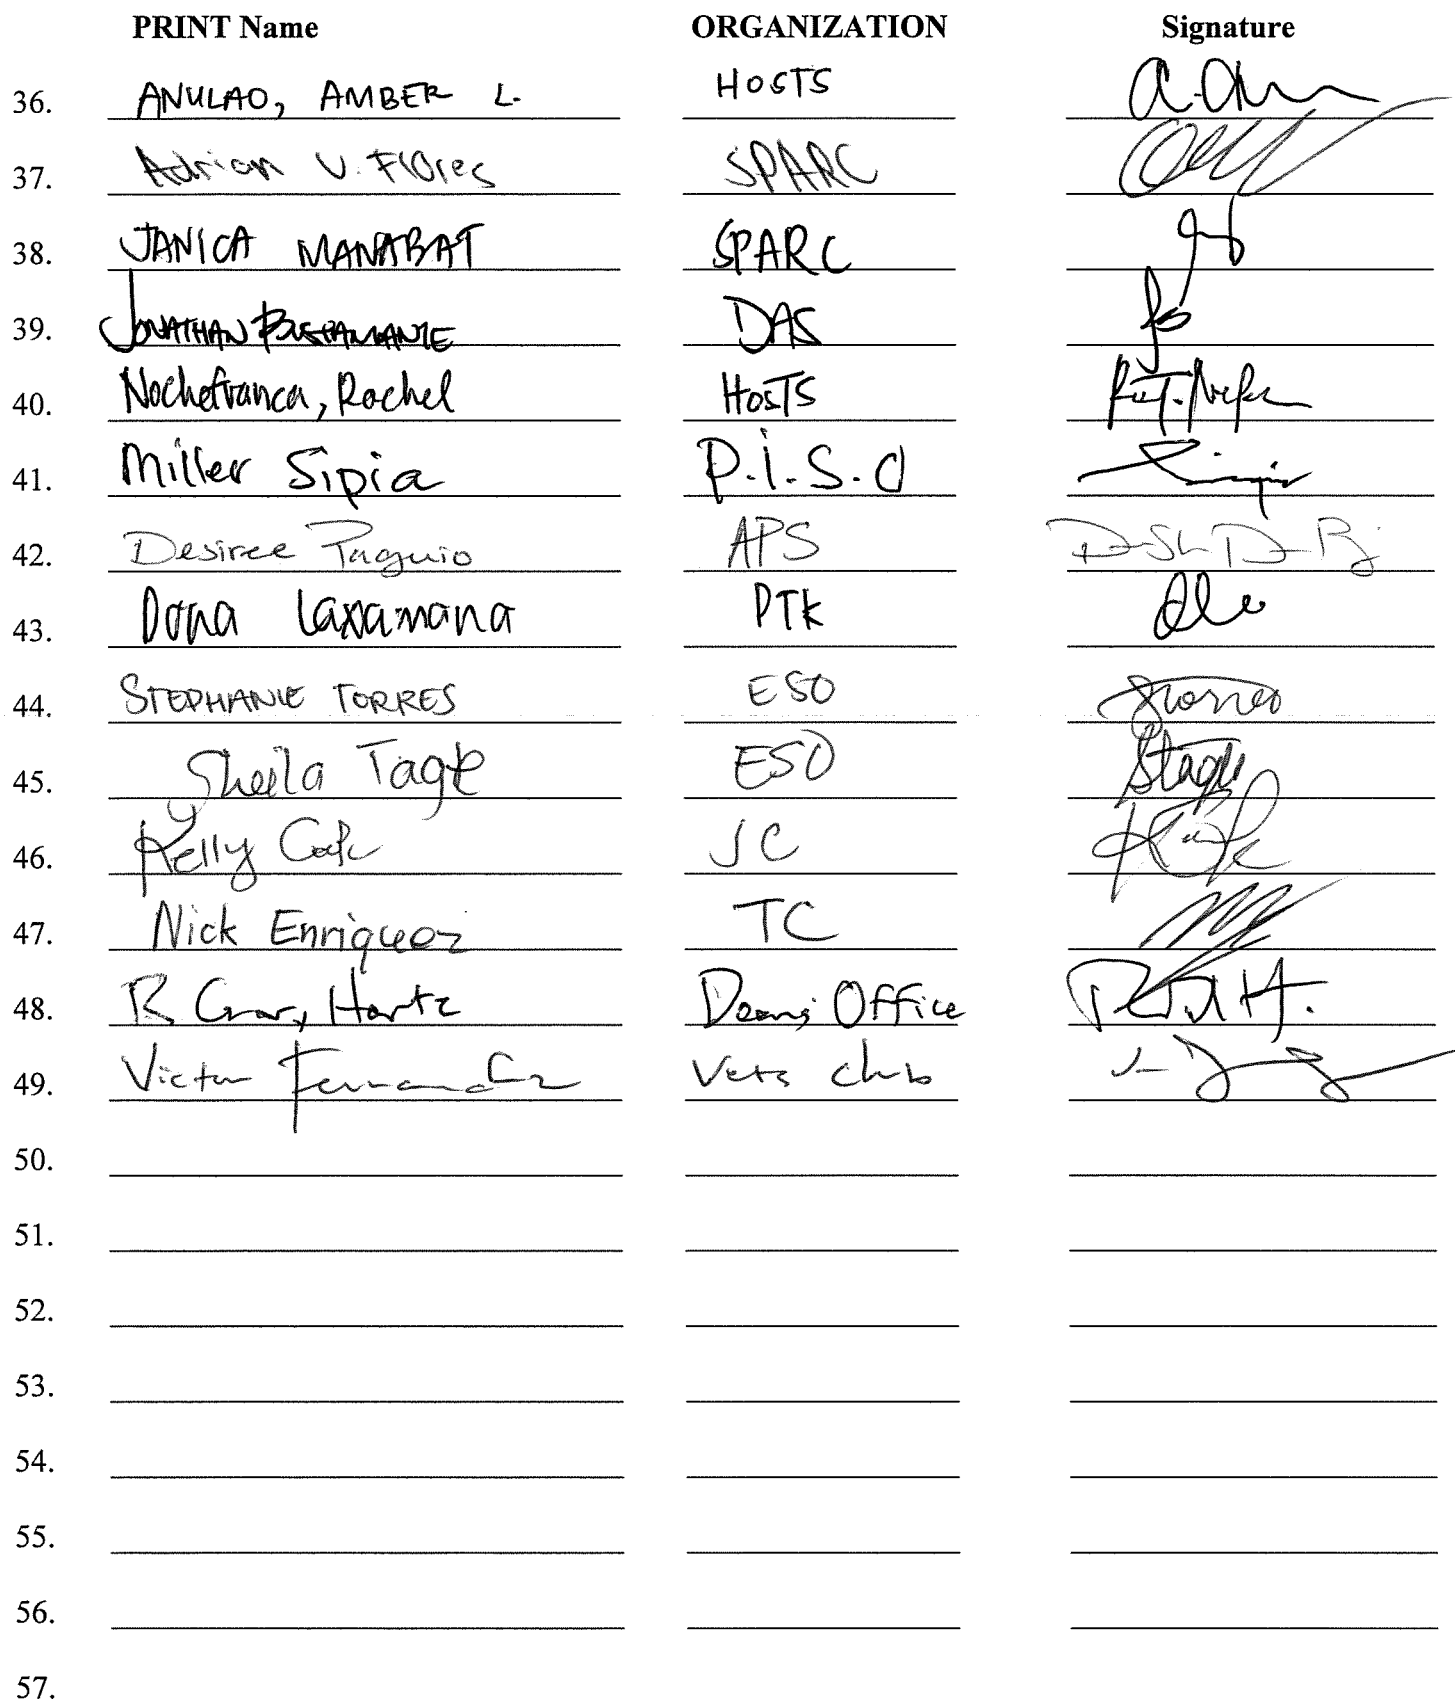 PRINT Name ORGANIZATION Signature
36. ANULAO, AMBER L. HOSTS
37. Adrian V. Flores SPARC
38. JANICA MANABAT SPARC
39. JONATHAN BUSTAMANTE DAS
40. Nochefranca, Rachel HOSTS
41. Miller Sipia P.I.S.O
42. Desiree Paguio APS
43. Dona Laxamana PTK
44. STEPHANIE TORRES ESO STorres
45. Sheila Tagle ESO STagle
46. Kelly JC
47. Nick Enriquez TC
48. R. Hartz Deans Office
49. Victor Fernandez Vets club
50.
51.
52.
53.
54.
55.
56.
57.